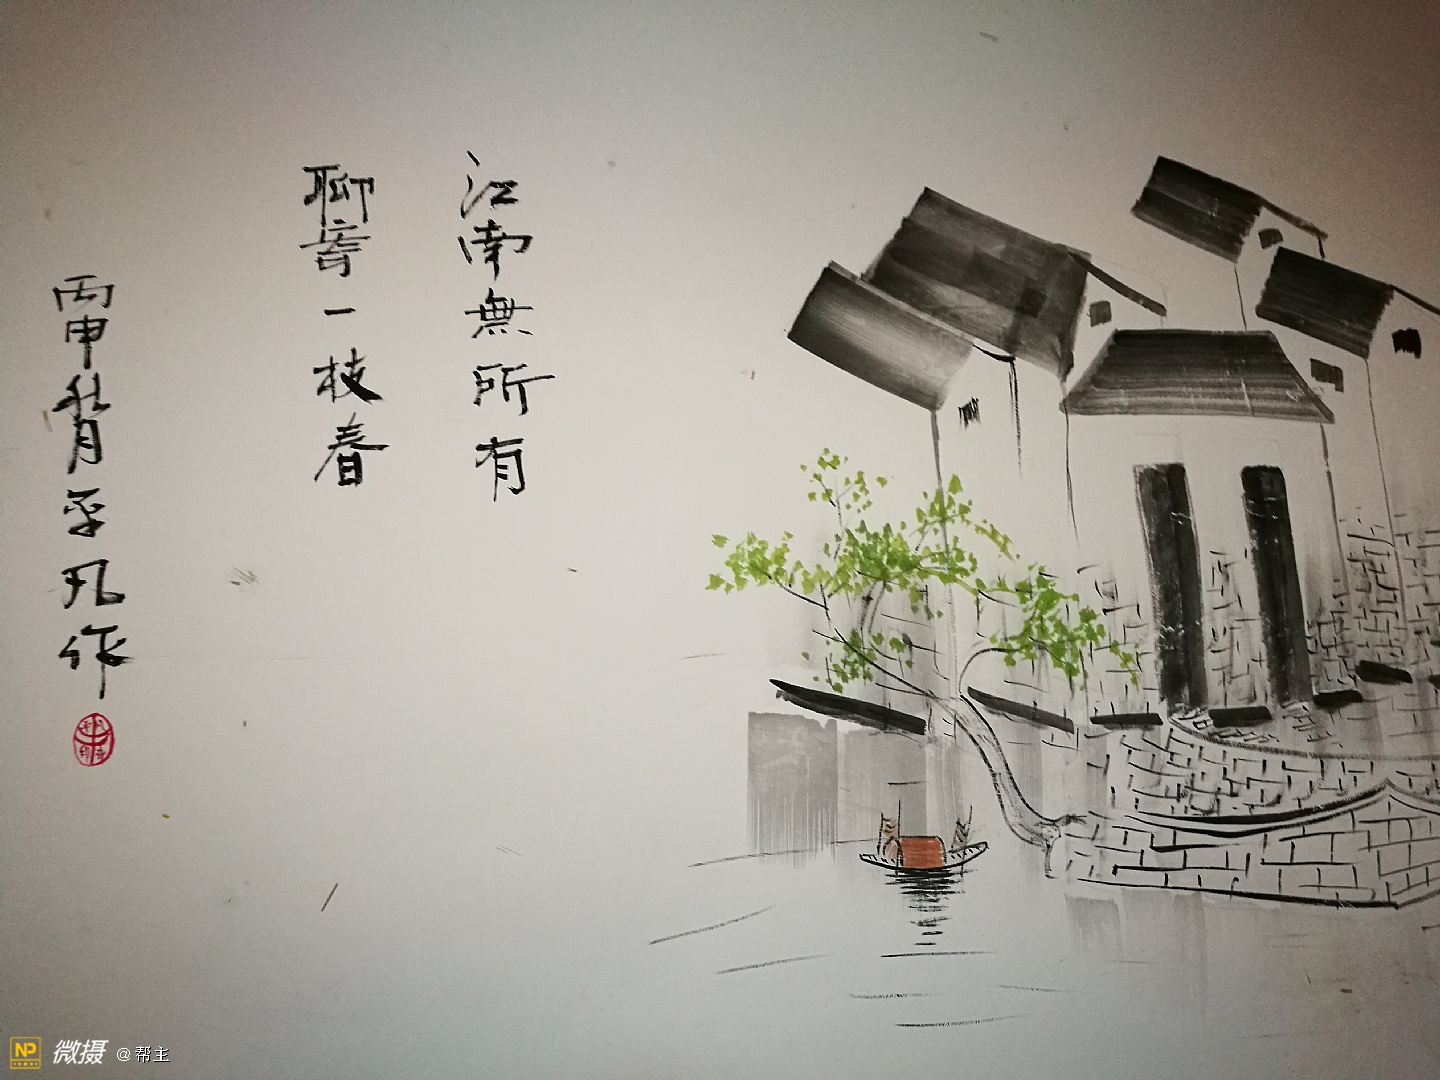 江南無所有
聊寄一枝春
丙申秋月平凡作
NP 微摄 @帮主